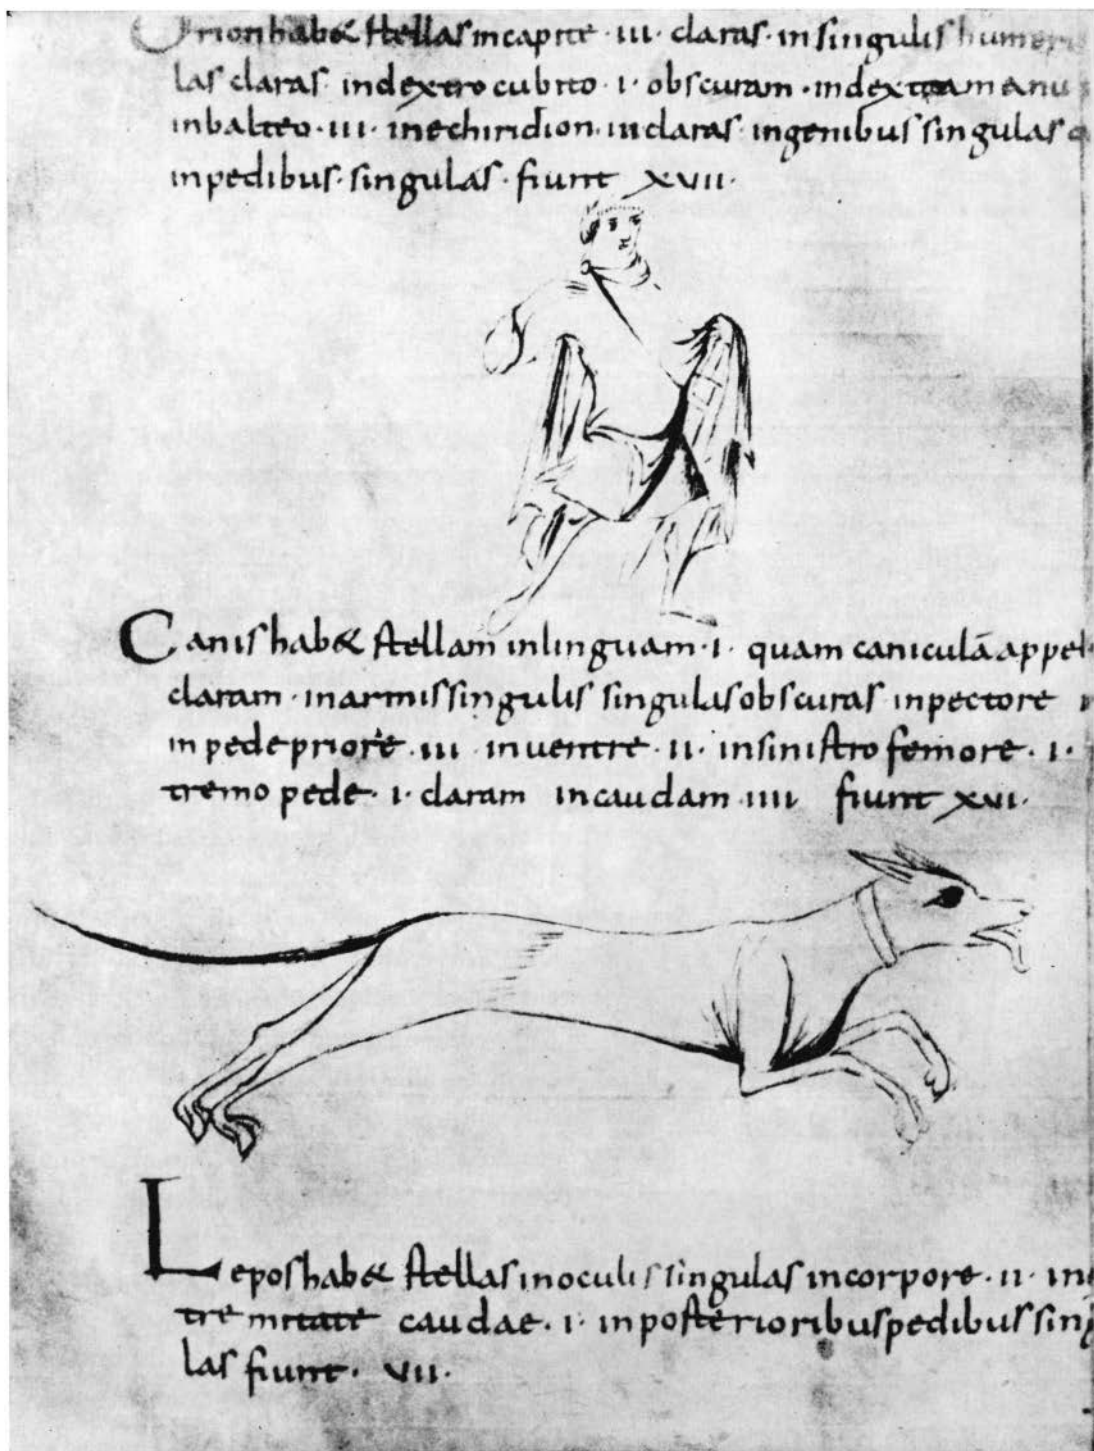 Orion hab& stellas incapite · iii · claras · insingulis humeris
las claras indextro cubito · i · obscuram · indextram manu
inbalteo · iii · inechiridion · iii claras ingenibus singulas
inpedibus · singulas · fiunt xvii ·
Canis hab& stellam inlinguam · i · quam caniculā appel
claram · inarmis singulis singulas obscuras inpectore
inpede priore · iii inventre · ii · insinistro femore · i ·
tremo pede · i · claram incaudam iiii fiunt xvi ·
Lepos hab& stellas inoculis singulas incorpore · ii · in
tremitate caudae · i · inposterioribus pedibus sing
las fiunt · vii ·